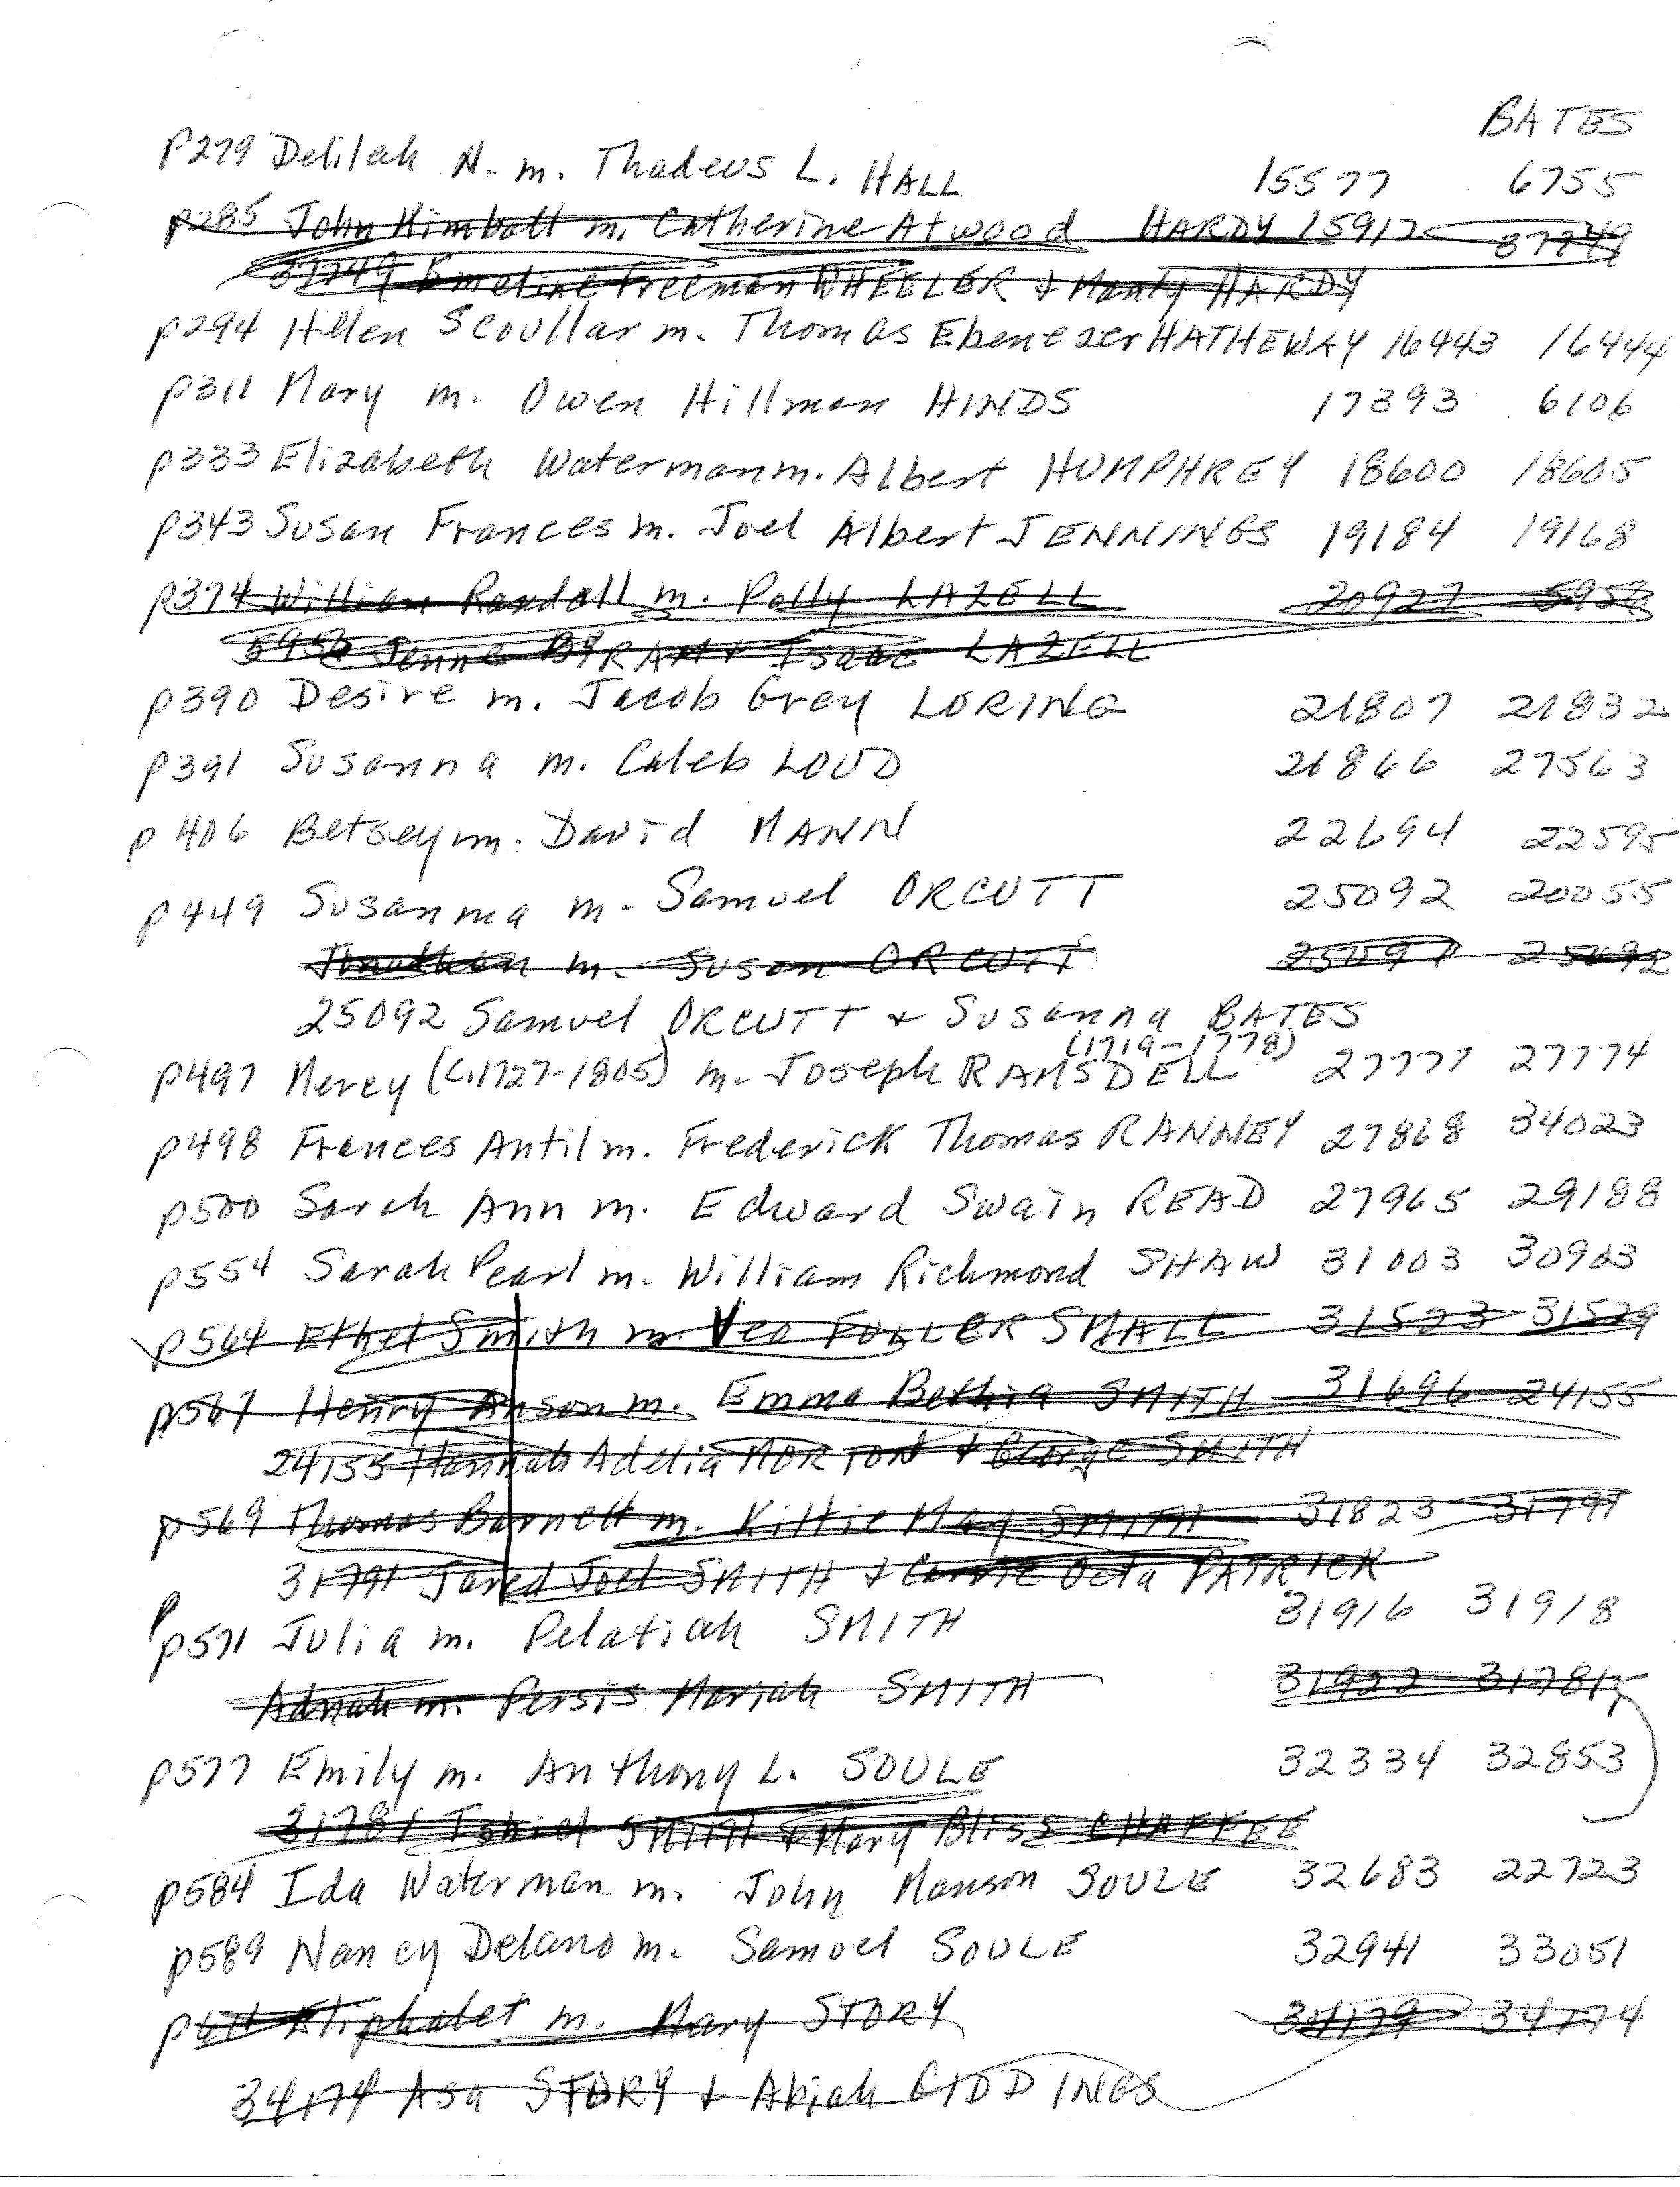 BATES
p279 Delilah N. m. Thadeus L. HALL 15577 6755
p285 John Kimball m. Catherine Atwood HARDY 15912 37749
37749 Emeline Freeman WHEELER + Manly HARDY
p294 Hellen Scoullar m. Thomas Ebenezer HATHEWAY 16443 16444
p311 Mary m. Owen Hillman HINDS 17393 6106
p333 Elizabeth Waterman m. Albert HUMPHREY 18600 18605
p343 Susan Frances m. Joel Albert JENNINGS 19184 19168
p374 William Randall m. Polly LAZELL 20927
Jenne BYRAM + Isaac LAZELL
p390 Desire m. Jacob Grey LORING 21807 21832
p391 Susanna m. Caleb LOUD 21866 27563
p406 Betsey m. David MANN 22694 22595
p449 Susanna m. Samuel ORCUTT 25092 20055
Jonathan m. Susan ORCUTT 25097 25092
25092 Samuel ORCUTT + Susanna BATES
(1719-1778)
p497 Mercy (c.1727-1805) m. Joseph RAMSDELL 27777 27774
p498 Frances Antil m. Frederick Thomas RANNEY 27868 34023
p500 Sarah Ann m. Edward Swain READ 27965 29188
p554 Sarah Pearl m. William Richmond SHAW 31003 30903
p564 Ethel Smith m. Veo FULLER SMALL 31523 31529
p567 Henry Anson m. Emma Bethia SMITH 31696 24155
24155 Hannah Adelia MORTON + George SMITH
p569 Thomas Barnett m. Kittie May SMITH 31823 31791
31791 Jared Joel SMITH + Carrie Octa PATRICK
p571 Julia m. Pelatiah SMITH 31916 31918
Adnah m. Persis Mariah SMITH 31922 31781
p577 Emily m. Anthony L. SOULE 32334 32853
31781 SMITH + Mary Bliss CHAFFEE
p584 Ida Waterman m. John Manson SOULE 32683 22723
p589 Nancy Delano m. Samuel SOULE 32941 33051
p611 Eliphalet m. Mary STORY 34179 34174
34174 Asa STORY + Abiah GIDDINGS